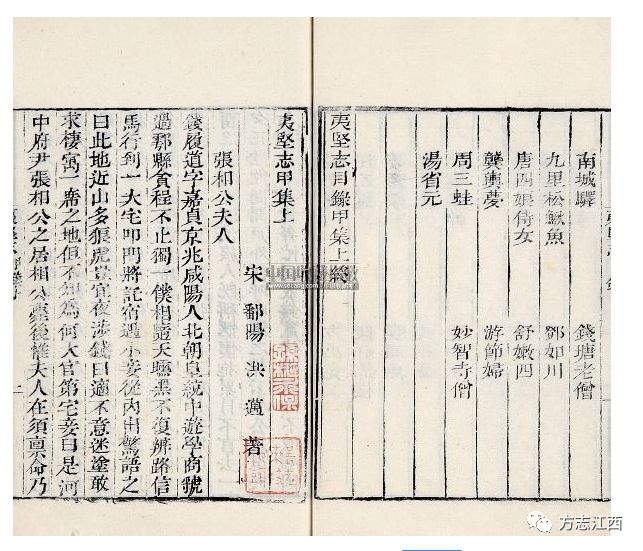 南城驛 錢塘老僧
九里松鰍魚 鄧如川
唐四娘侍女 舒嫩四
龔輿夢 游節婦
周三蛙 妙智寺僧
湯省元
夷堅志目錄甲集上終
夷堅志甲集上
宋 鄱陽 洪邁 著
張相公夫人
錢履道字嘉貞京兆咸陽人北朝皇統中遊學商虢
過鄠縣貪程不止獨一僕相隨天曛黑不復辨路信
馬行到一大宅叩門將託宿遇小妾從內出驚語之
曰此地近山多狼虎豈宜夜涉錢曰適不意迷塗敢
求棲寓一席之地但不知為何大官第宅妾曰是河
中府尹張相公之居相公薨後惟夫人在須稟命乃
方志江西